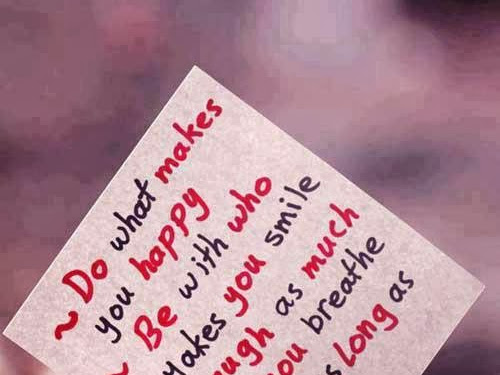 ~ Do what makes
you happy
~ Be with who
makes you smile
as much
you breathe
Long as